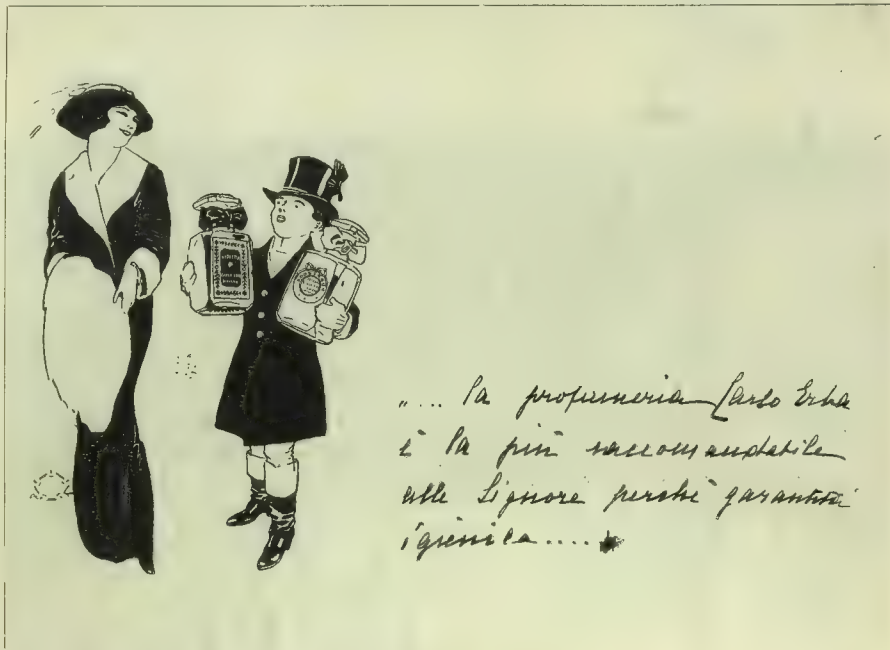 „.... la profumeria Carlo Erba
è la più raccomandabile
alle Signore perchè garantita
igienica.....